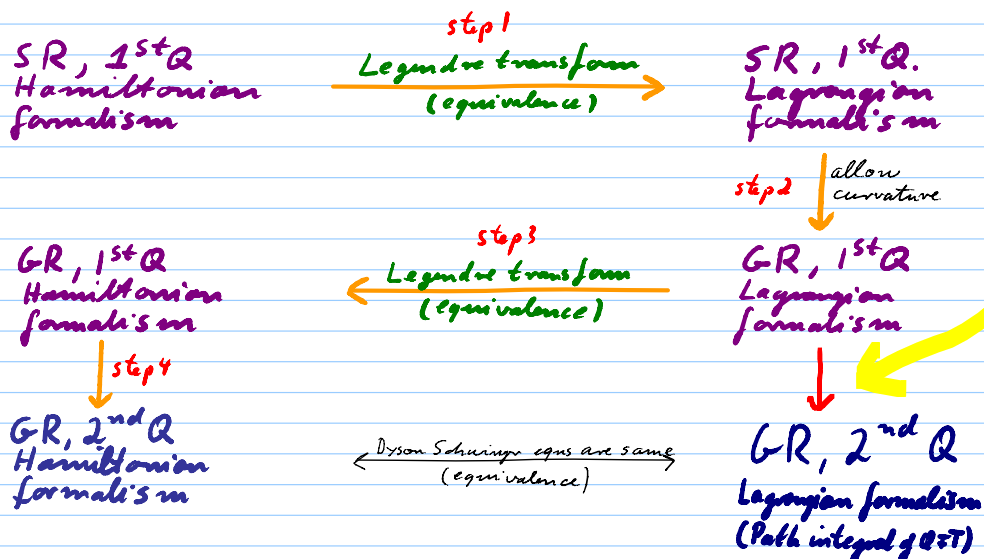 step1
SR, 1stQ
Hamiltonian
formalism
Legendre transform
(equivalence)
SR, 1stQ.
Lagrangian
formalism
step2
allow
curvature
step3
GR, 1stQ
Hamiltonian
formalism
Legendre transform
(equivalence)
GR, 1stQ
Lagrangian
formalism
step4
GR, 2nd Q
Hamiltonian
formalism
Dyson Schwinger eqns are same
(equivalence)
GR, 2nd Q
Lagrangian formalism
(Path integral of QFT)